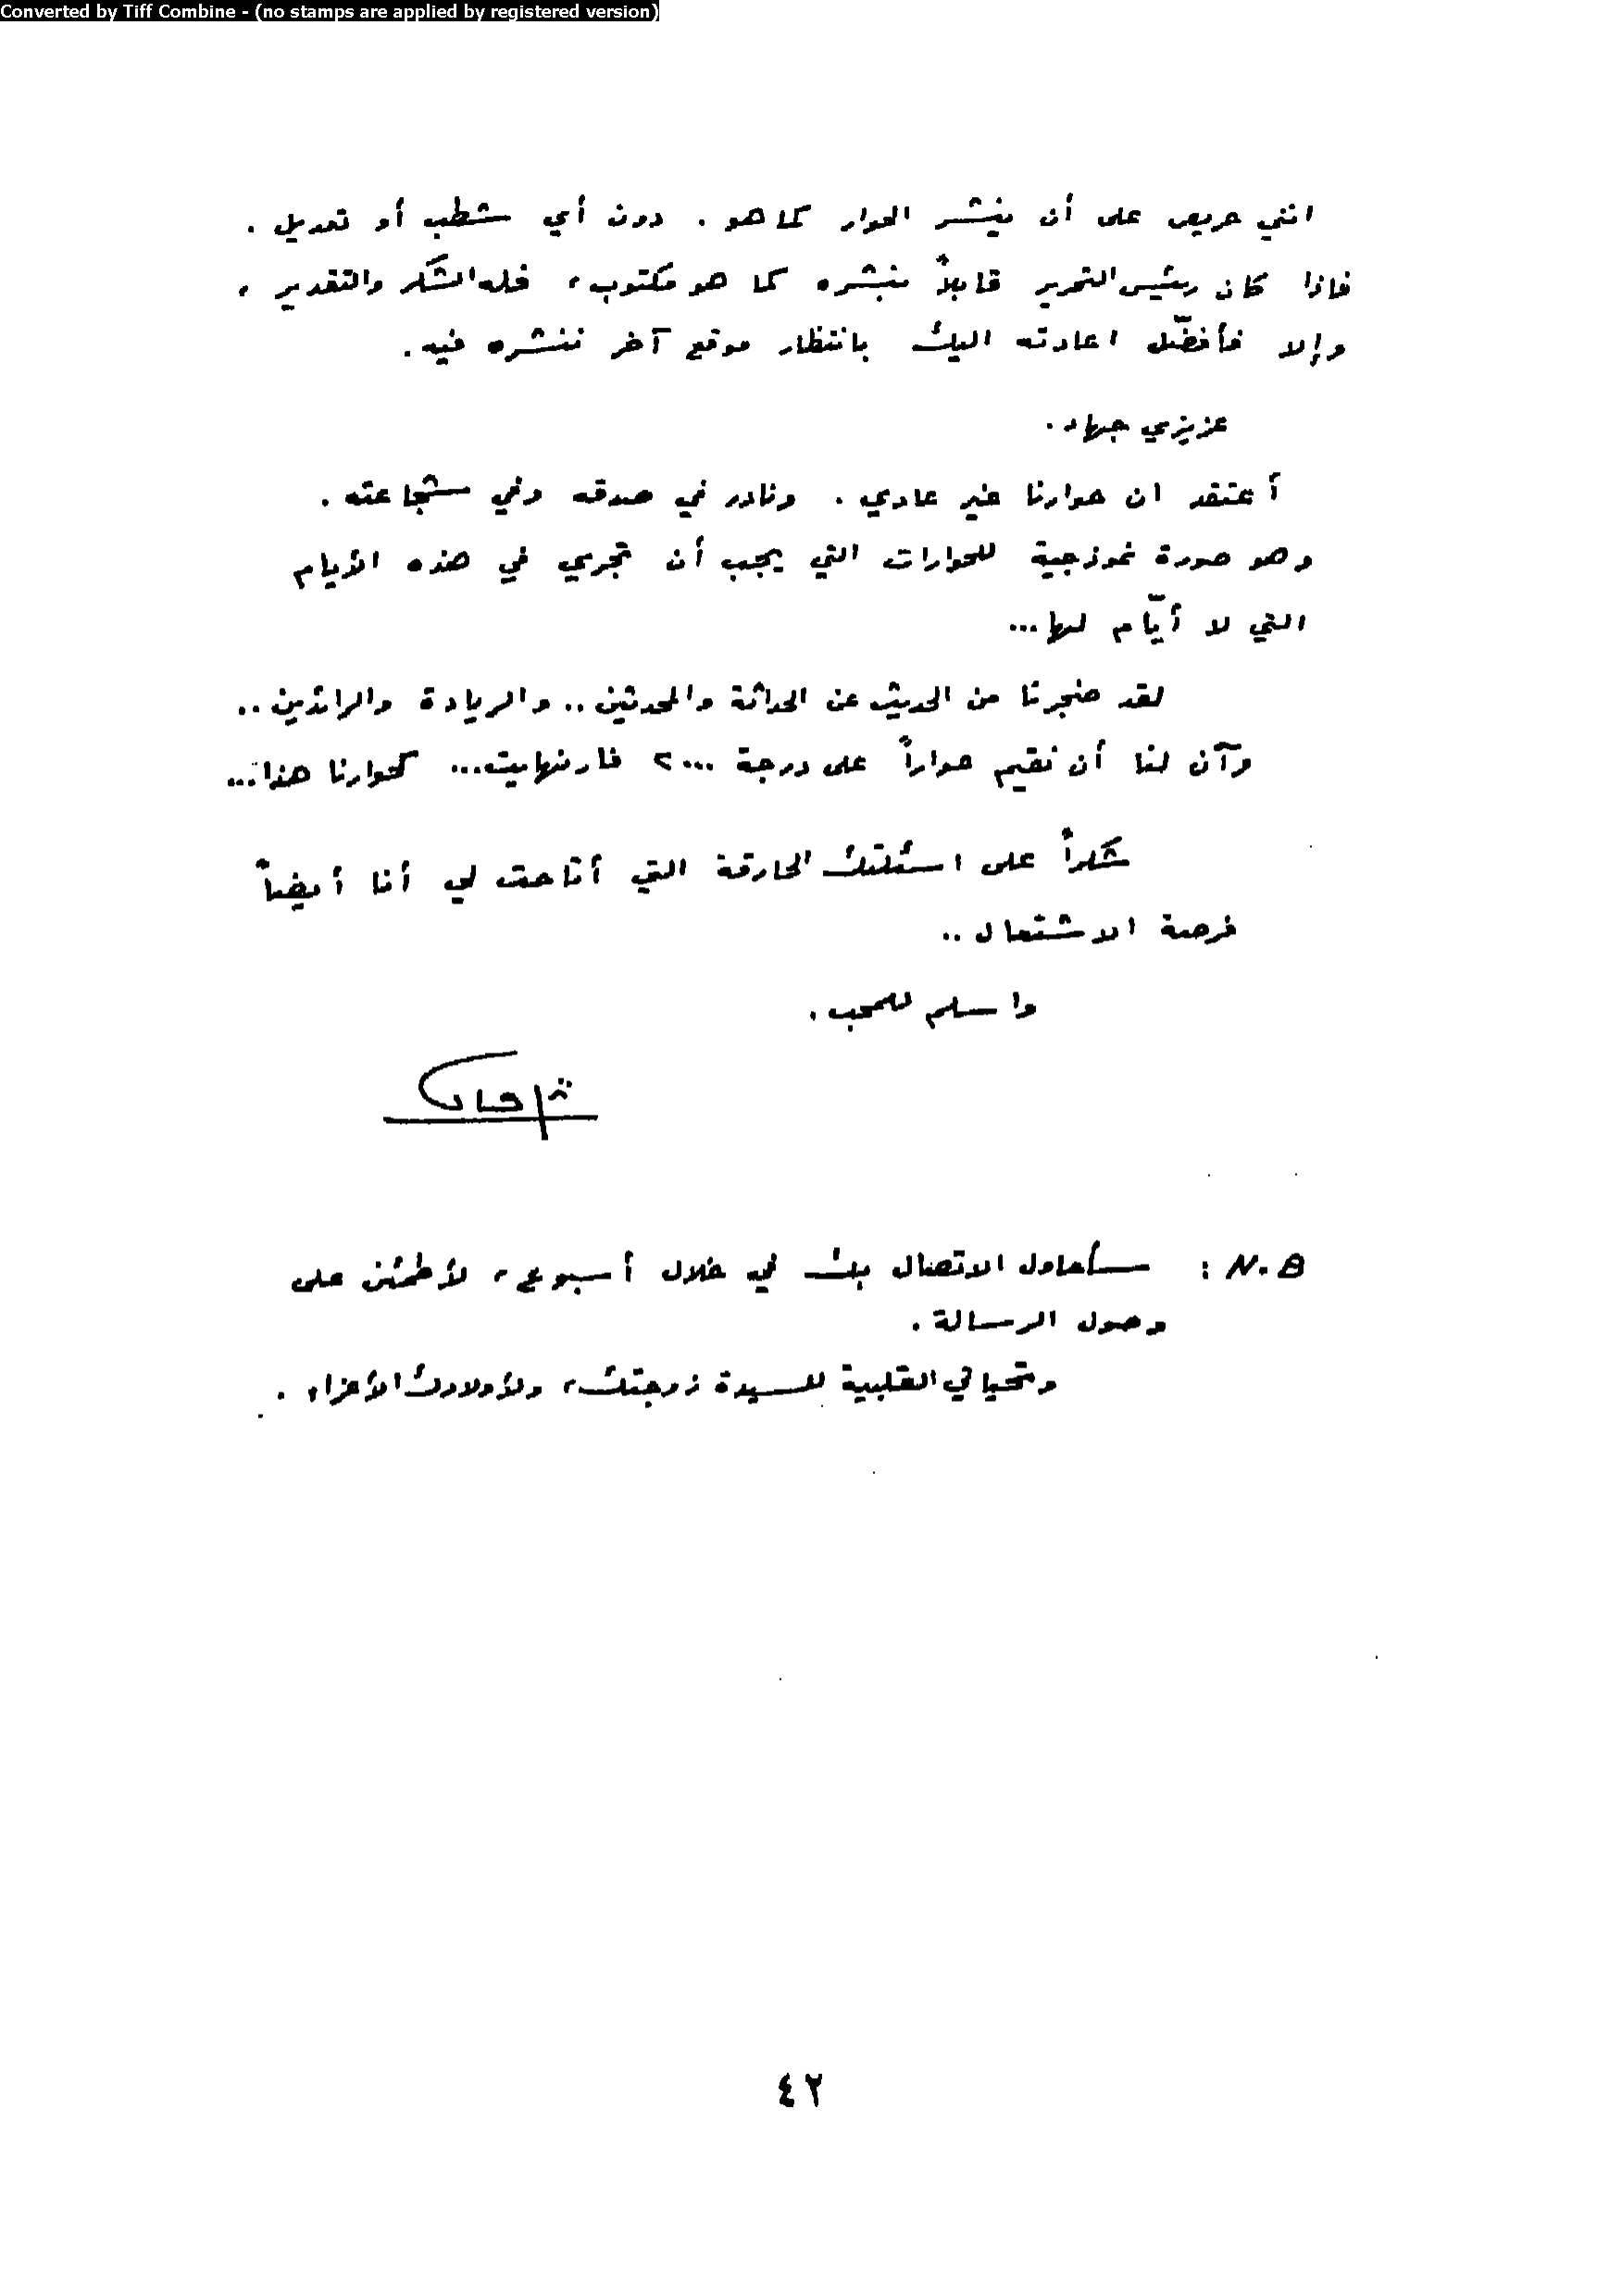 Converted by Tiff Combine - (no stamps are applied by registered version)
انني حريص على أن ينشر الحوار كما هو . دون أي شطب أو تعديل .
فاذا كان رئيس التحرير قابلاً بنشره كما هو مكتوب، فله الشكر والتقدير ،
وإلا فأفضّل اعادته اليك بانتظار موقع آخر ننشره فيه .
عزيزي جهاد .
أعتقد ان حوارنا غير عادي . ونادر في صدقه وفي شجاعته .
وهو صورة نموذجية للحوارات التي يجب أن تجري في هذه الأيام
التي لا أيّام لها ...
لقد ضجرنا من الحديث عن الحداثة والمحدثين .. والريادة والرائدين ..
وآن لنا أن نقيم حواراً على درجة ٢٠٠٠ فارنهايت ... كحوارنا هذا ...
شكراً على اسئلتك الحارقة التي أتاحت لي أنا أيضاً
فرصة الاشتعال ..
واسلم للمحب .
N.B : سأحاول الاتصال بك في خلال أسبوع، لأطمئن على
وصول الرسالة .
وتحياتي القلبية للسيدة زوجتك، ولأولادك الأعزاء .
٤٢